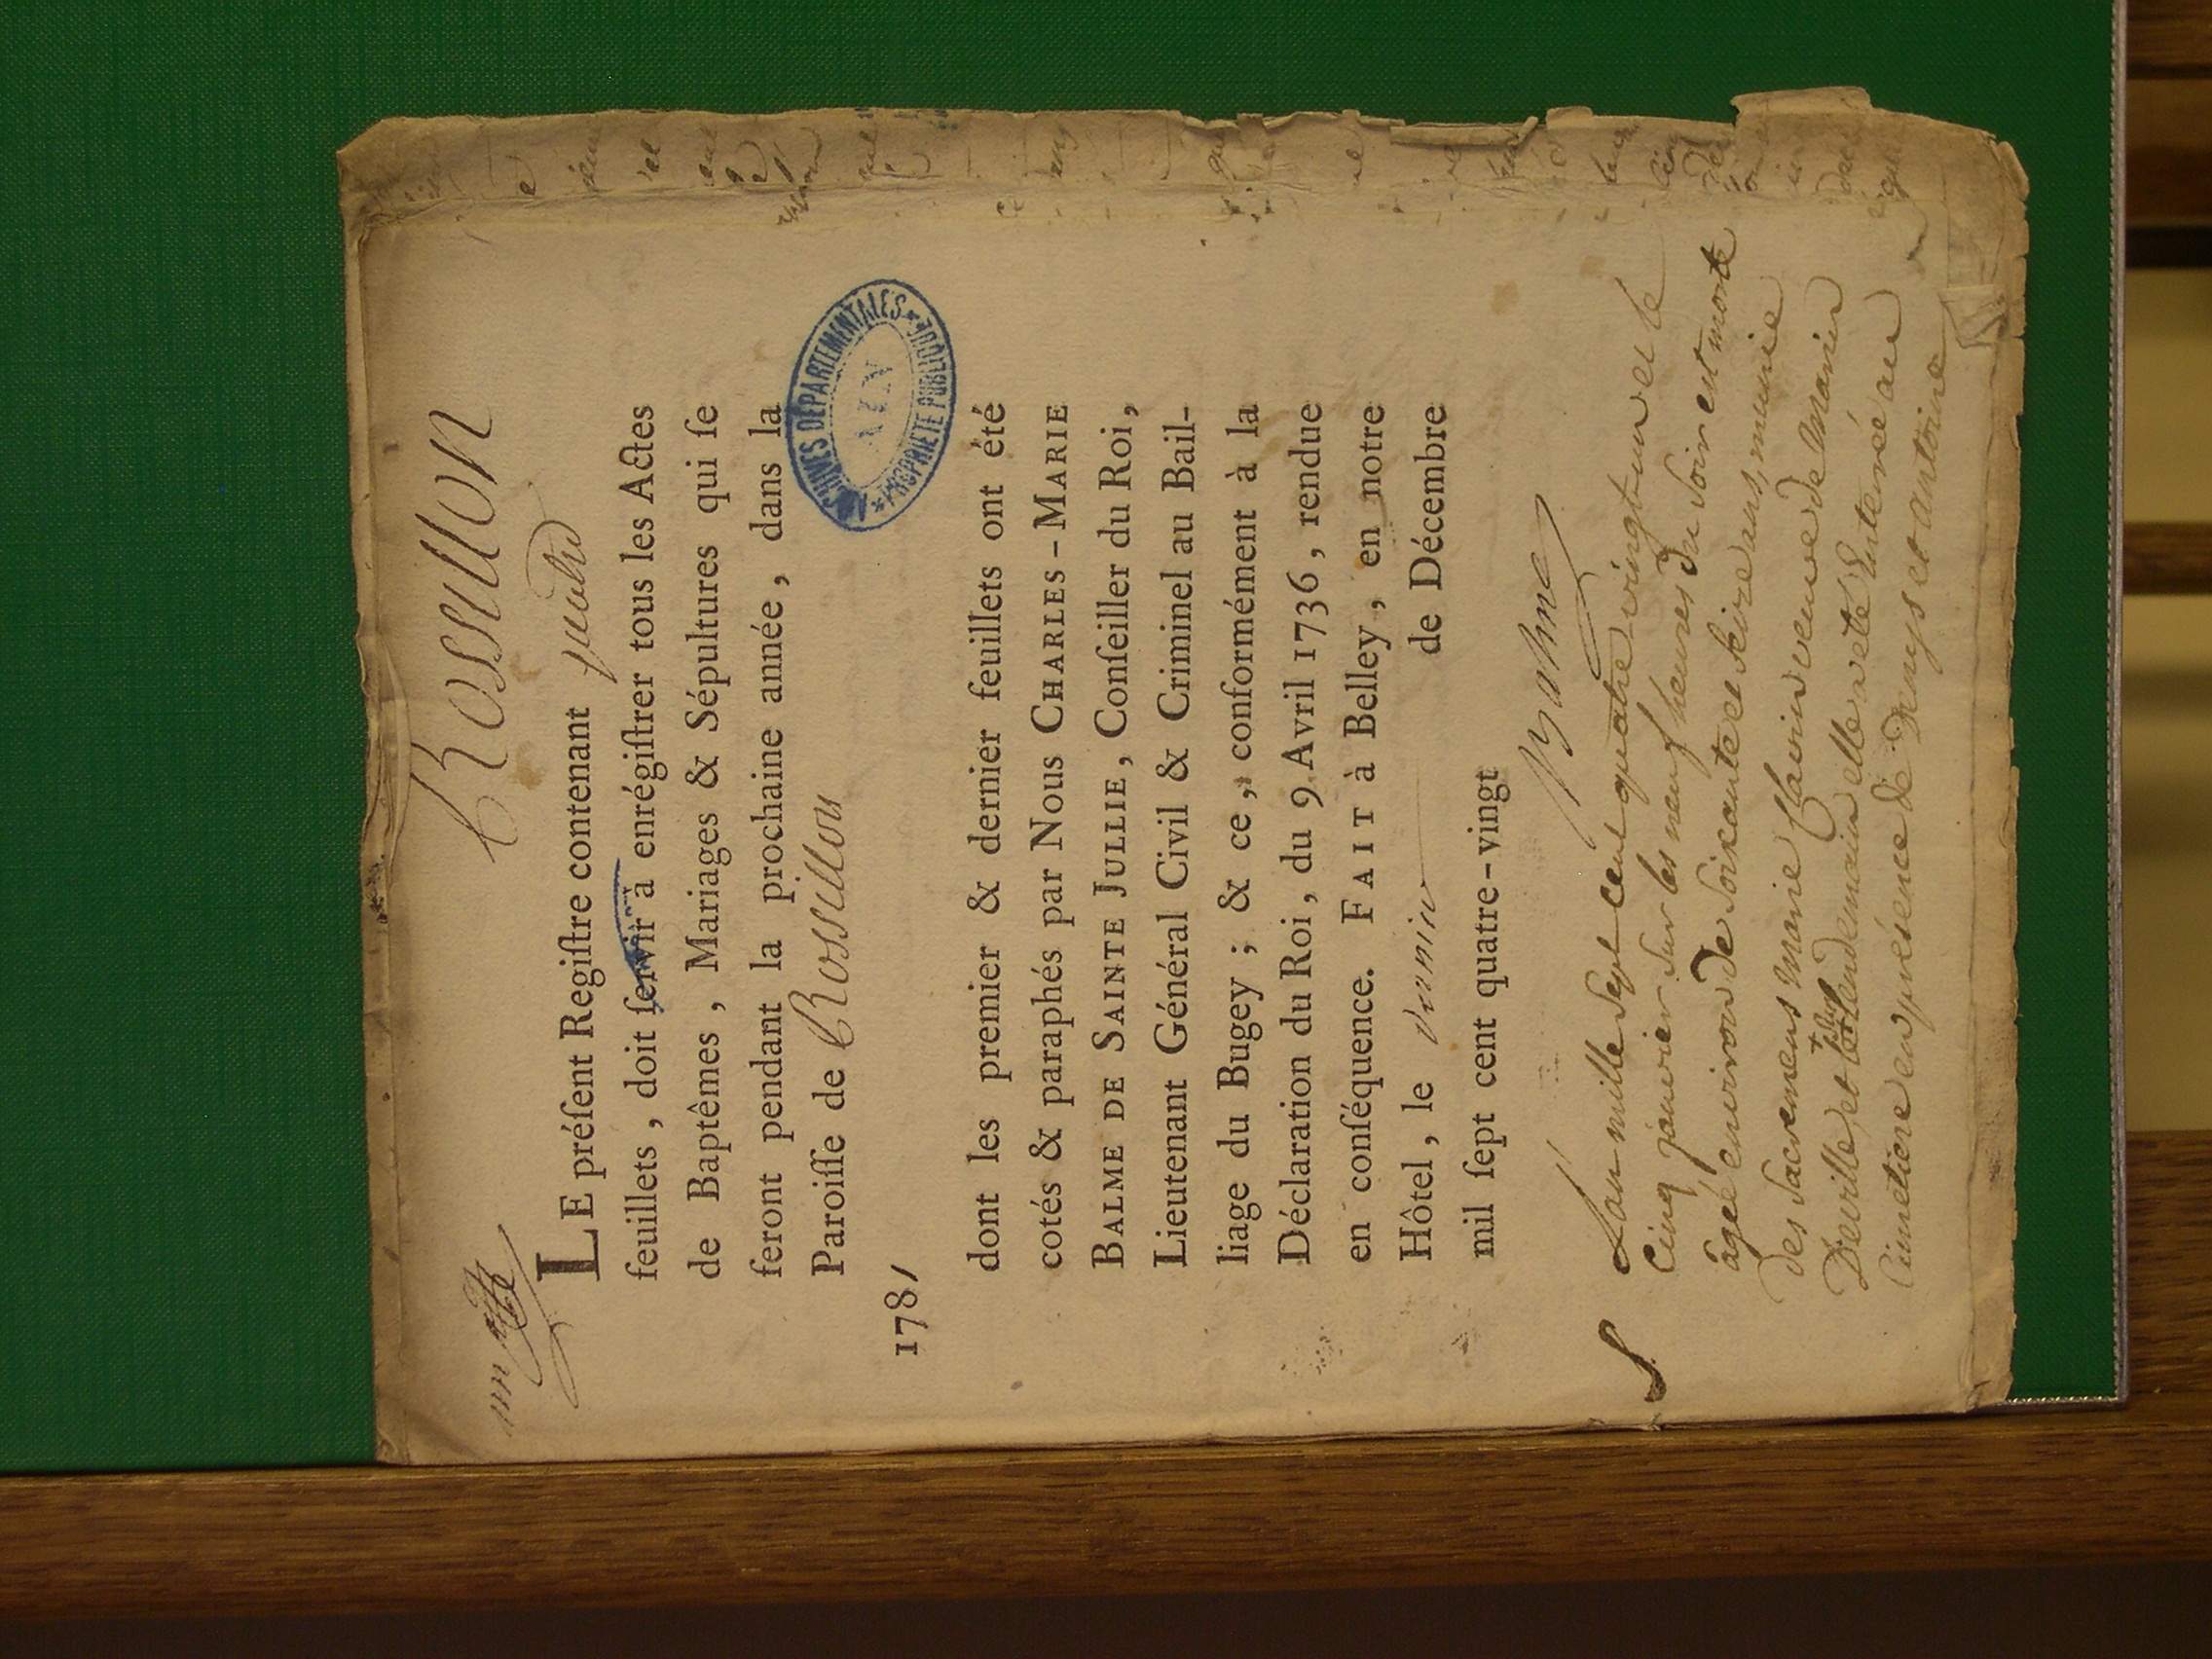 Rossillon
LE préſent Regiſtre contenant quatre
feuillets, doit ſervir à enrégiſtrer tous les Actes
de Baptêmes, Mariages & Sépultures qui ſe
feront pendant la prochaine année, dans la
Paroiſſe de Rossillon
1781
ARCHIVES DÉPARTEMENTALES
AIN
PROPRIÉTÉ PUBLIQUE
dont les premier & dernier feuillets ont été
cotés & paraphés par Nous CHARLES-MARIE
BALME DE SAINTE JULLIE, Conſeiller du Roi,
Lieutenant Général Civil & Criminel au Bail-
liage du Bugey; & ce, conformément à la
Déclaration du Roi, du 9 Avril 1736, rendue
en conſéquence. FAIT à Belley, en notre
Hôtel, le de Décembre
mil ſept cent quatre-vingt
Balme
S
Lan mille Sept cent quatre vingt un et le
Cinq janvier Sur les neuf heures du Soir est morte
âgée environ de Soixante et seize ans, munie
des Sacremens Marie veuve de Marin
Deville, et le lendemain elle a eté Enterrée au
Cimetiere en presence de Denys et antoine